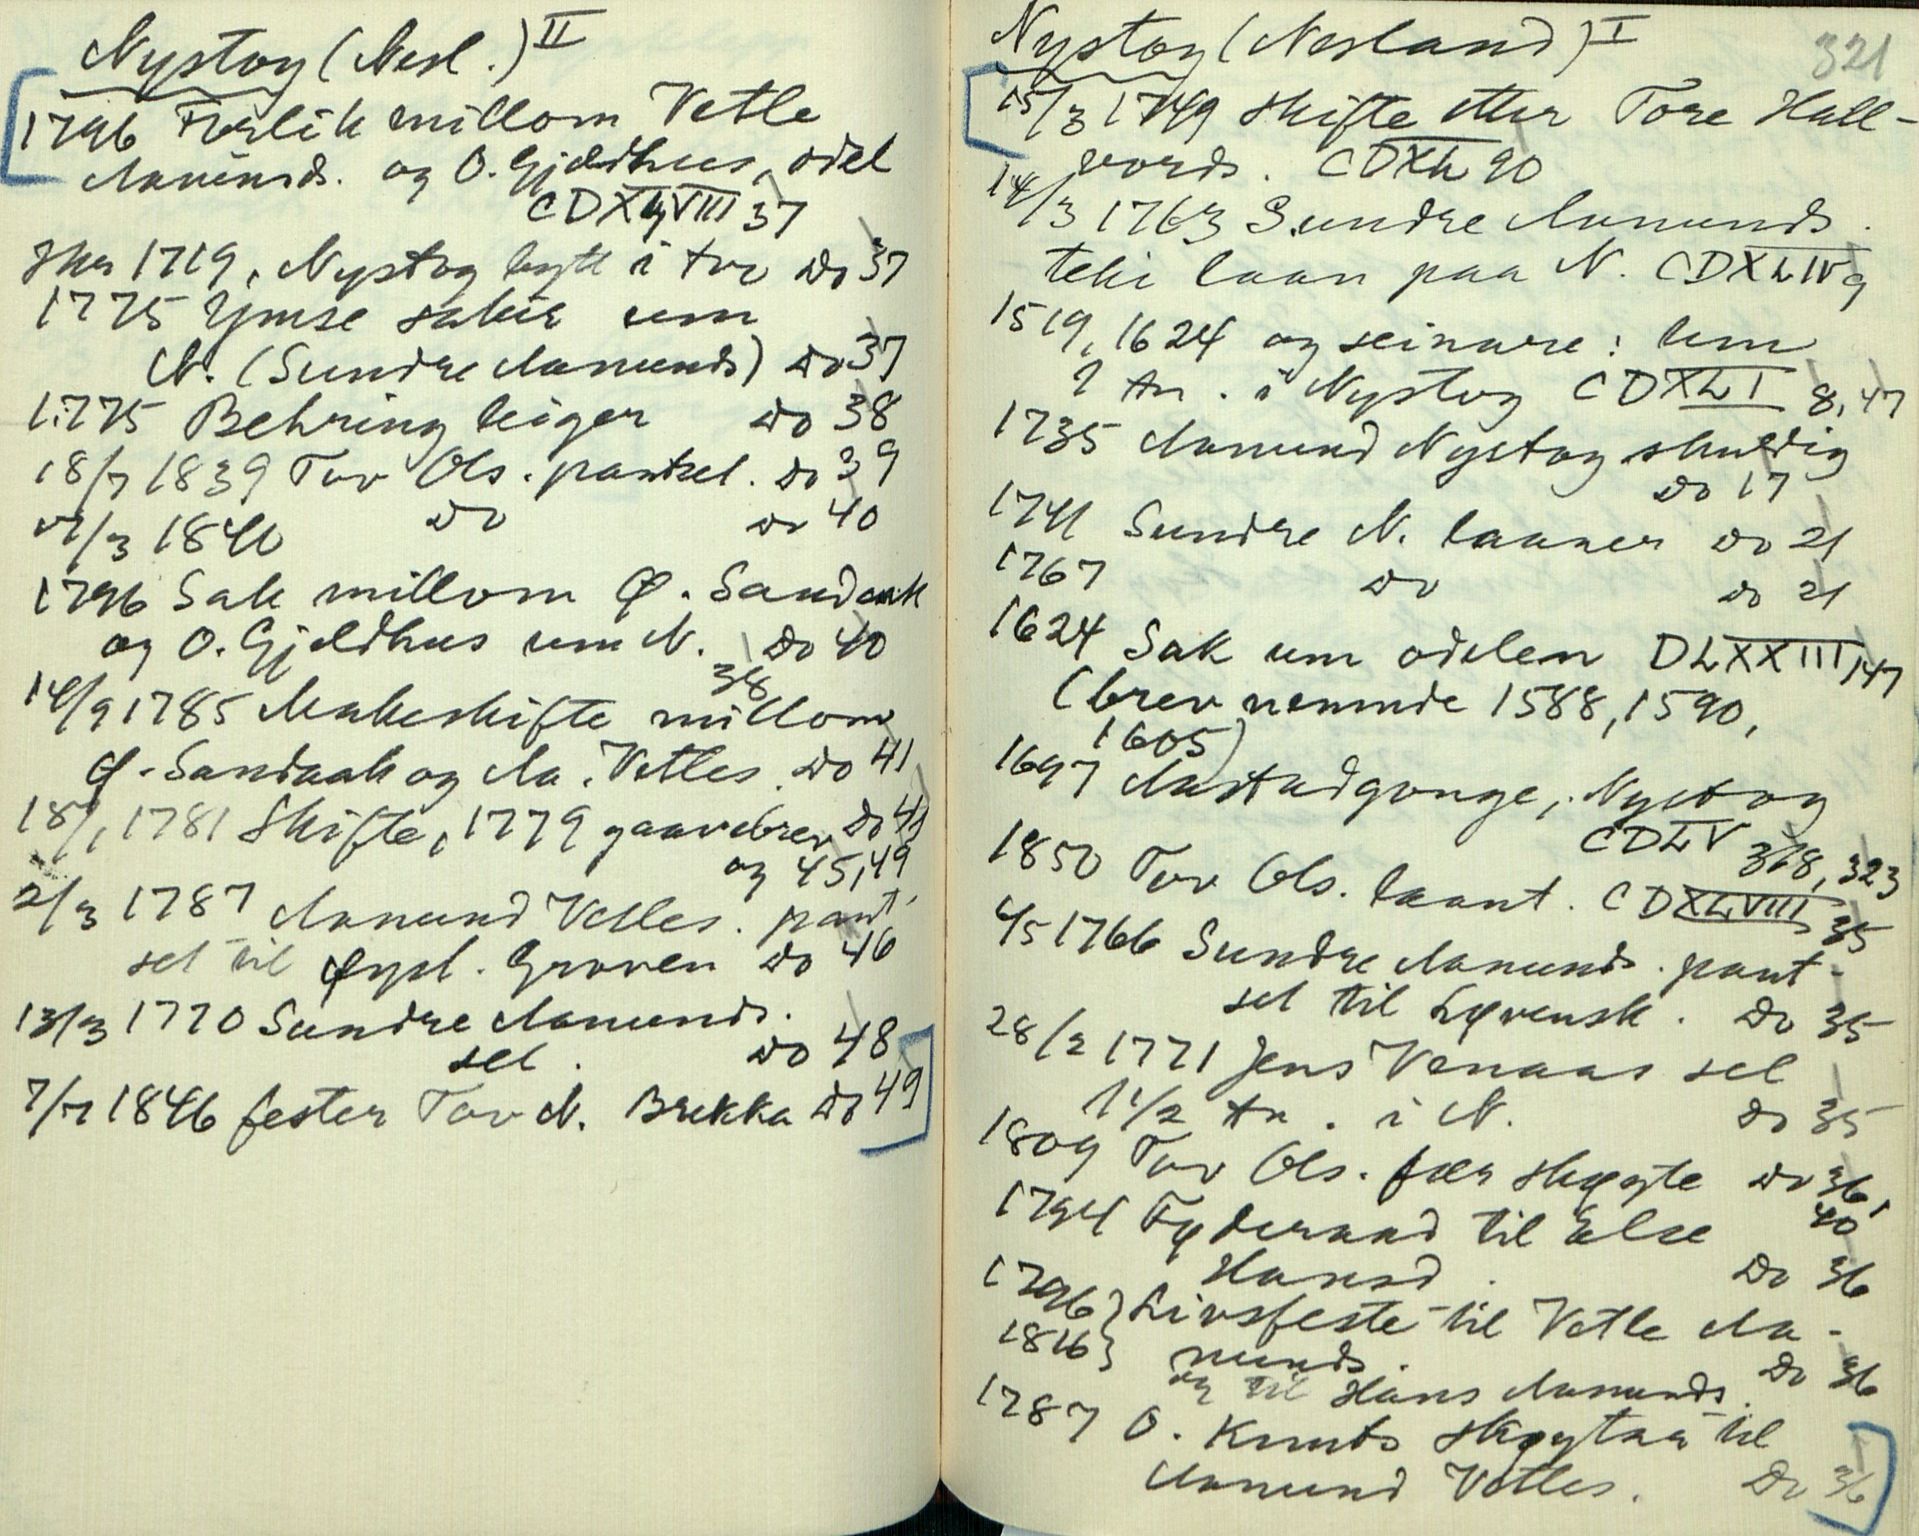 Nystog (Nesl.) II
1796 Forlik millom Vetle
Aamunds. og O. Gjeldhus, odel
CDXLVIII 37
1719, Nystog bytt i tvo Do 37
1775 Ymse sakir um
N. (Sundre Aamunds) Do 37
1775 Behring biger Do 38
18/7 1839 Tov Ols. pantsel. Do 39
/3 1840 Do Do 40
1796 Sak millom Ø. Sandaak
og O. Gjeldhus um N. Do 40
38
14/9 1785 Makeskifte millom
Ø. Sandaak og Aa. Vetles. Do 41
18/1 1781 Skifte, 1779 gaavebrev Do 41
og 45, 49
2/3 1787 Aamund Vetles. pant-
sel til Øysl. Groven Do 46
13/3 1770 Sundre Aamunds.
sel. Do 48
7/7 1846 fester Tov N. Brekka Do 49
Nystog (Nesland) I
321
15/3 1749 Skifte etter Tore Hall-
vords. CDXL 90
14/3 1763 Sundre Aamunds.
teki laan paa N. CDXLIV 9
1519, 1624 og seinare: um
2 tn. i Nystog CDXLI 8, 47
1735 Aamund Nystog skuldig
Do 17
1741 Sundre N. laaner Do 21
1767 Do Do 21
1624 Sak um odelen DLXXIII, 147
(brev nemnde 1588, 1590,
1605)
1697 Aastadgonge, Nystog
CDLV 318, 323
1850 Tov Ols. laant. CDXLVIII 35
4/5 1766 Sundre Aamunds. pant-
sel til Løvensk. Do 35
28/2 1771 Jens Venaas sel
1 1/2 tn. i N. Do 35
1809 Tov Ols. fær skøyte Do 36,
40
1794 Føderaad til Else
Hansd. Do 36
1796 } Livsfeste til Vetle Aa-
1816 } munds. Do 36
og til Hans Aamunds.
1787 O. Knuts skøytar til
Aamund Vetles. Do 36